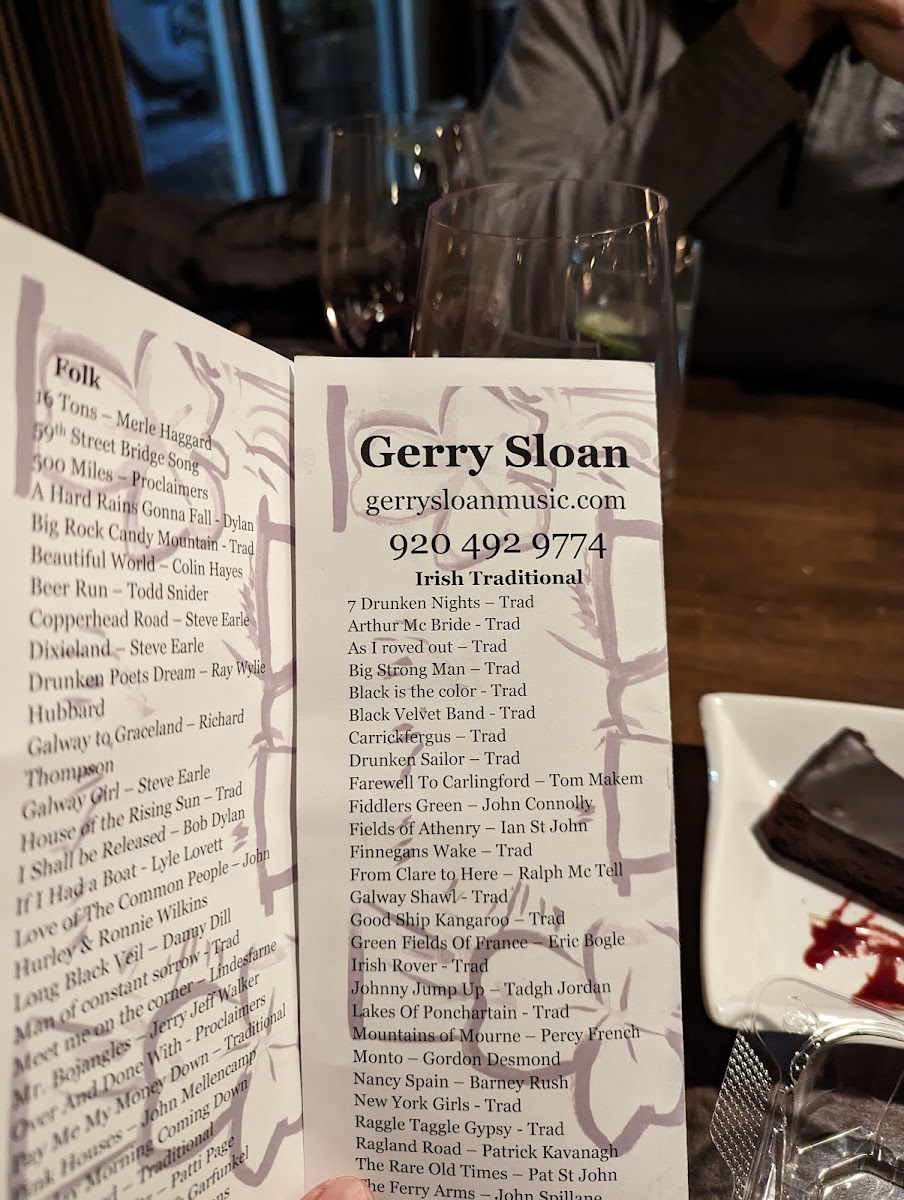 Folk
16 Tons – Merle Haggard
59th Street Bridge Song
500 Miles – Proclaimers
A Hard Rains Gonna Fall - Dylan
Big Rock Candy Mountain - Trad
Beautiful World – Colin Hayes
Beer Run – Todd Snider
Copperhead Road – Steve Earle
Dixieland – Steve Earle
Drunken Poets Dream – Ray Wylie
Hubbard
Galway to Graceland – Richard
Thompson
Galway Girl – Steve Earle
House of the Rising Sun – Trad
I Shall be Released – Bob Dylan
If I Had a Boat - Lyle Lovett
Love of The Common People – John
Hurley & Ronnie Wilkins
Long Black Veil – Danny Dill
Man of constant sorrow - Trad
Meet me on the corner – Lindesfarne
Mr. Bojangles – Jerry Jeff Walker
Over And Done With - Proclaimers
Pay Me My Money Down – Traditional
Pink Houses – John Mellencamp
Morning Coming Down
– Traditional
– Patti Page
Garfunkel
Gerry Sloan
gerrysloanmusic.com
920 492 9774
Irish Traditional
7 Drunken Nights – Trad
Arthur Mc Bride - Trad
As I roved out – Trad
Big Strong Man – Trad
Black is the color - Trad
Black Velvet Band - Trad
Carrickfergus – Trad
Drunken Sailor – Trad
Farewell To Carlingford – Tom Makem
Fiddlers Green – John Connolly
Fields of Athenry – Ian St John
Finnegans Wake – Trad
From Clare to Here – Ralph Mc Tell
Galway Shawl - Trad
Good Ship Kangaroo – Trad
Green Fields Of France – Eric Bogle
Irish Rover - Trad
Johnny Jump Up – Tadgh Jordan
Lakes Of Ponchartain - Trad
Mountains of Mourne – Percy French
Monto – Gordon Desmond
Nancy Spain – Barney Rush
New York Girls - Trad
Raggle Taggle Gypsy - Trad
Ragland Road – Patrick Kavanagh
The Rare Old Times – Pat St John
The Ferry Arms – John Spillane